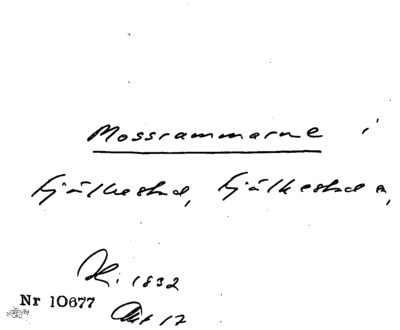 Mossrammarne i
Fjälkestad, Fjälkestads
H. 1832
Nr 10677
Akt 17